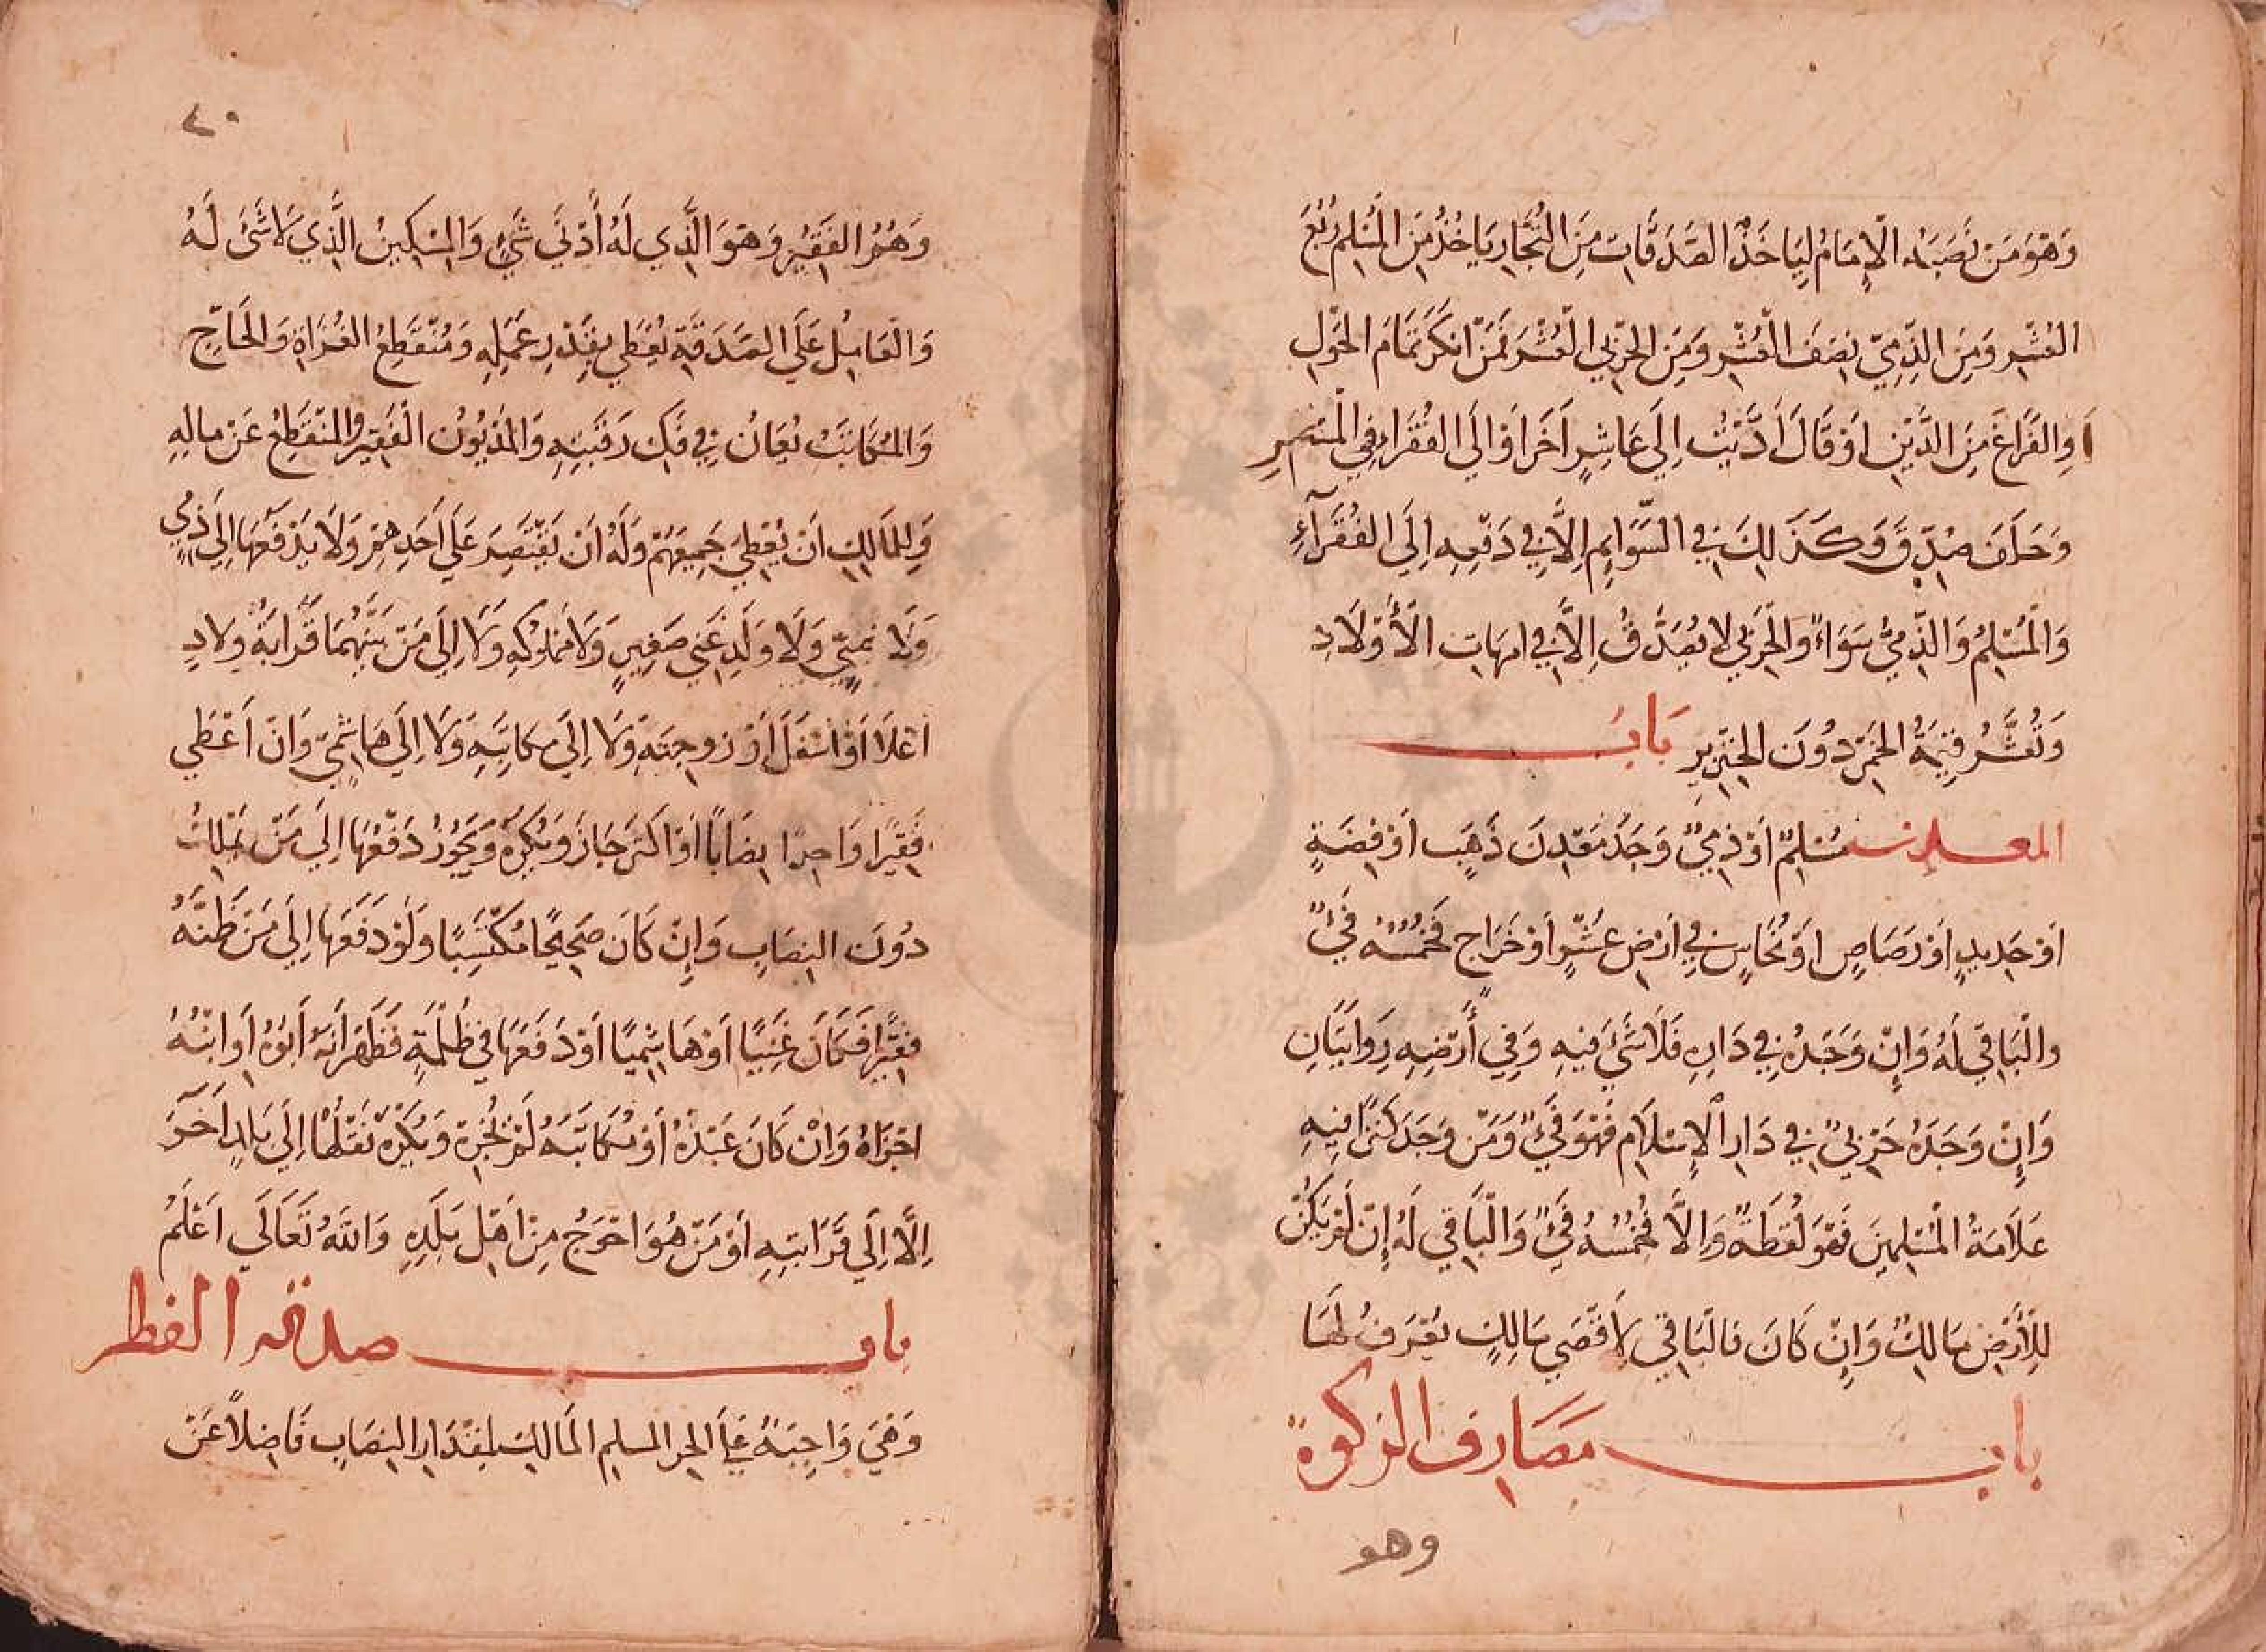 وَهُوَ مَنْ نَصَبَهُ الْإِمَامُ لِيَاخَذَ الصَّدَقَاتِ مِنَ التُّجَّارِ يَاخُذُ مِنَ الْمُسْلِمِ رُبْعَ
الْعُشْرِ وَمِنَ الذِّمِّيِّ نِصْفَ الْعُشْرِ وَمِنَ الْحَرْبِيِّ الْعُشْرَ فَمَنْ انْكَرَ تَمَامَ الْحَوْلِ
اَوِ الْفَرَاغَ مِنَ الدَّيْنِ اوْ قَالَ أَدَّيْتُ إِلَى عَاشِرٍ اَخَرَ اَوْ اِلَى الفُقَرَاءِ فِي الْمِصْرِ
وَحَلَفَ صُدِّقَ وَكَذَلِكَ فِي السَّوَايِمِ اِلَّا فِي دَفْعِهِ اِلَى الفُقَرَآءِ
وَالْمُسْلِمُ وَالذِّمِّيُّ سَوَاءٌ وَالْحَرْبِيُّ لا يُصَدَّقُ اِلاَّ فِي امهَاتِ الْأَوْلَادِ
وَتُعَشَّرُ قِيمَةُ الْخَمْرِ دُونَ الْخِنْزِيرِ بَابُ
المعدن مُسْلِمٌ اَوْ ذِمِّيٌّ وَجَدَ مَعْدِنَ ذَهَبٍ اَوْ فِضَةٍ
اوْ حَدِيدٍ اَوْ رَصَاصٍ اوْ نُحَاسٍ فِي اَرْضِ عُشْرٍ اَوْ خَرَاجٍ فَخُمُسُهُ فَيْءٌ
وَالْبَاقِي لَهُ وَإِنْ وَجَدَهُ فِي دَارِهِ فَلَا شَيْءَ فِيهِ وَفِي أَرْضِهِ رِوَايَتَانِ
وَإِنْ وَجَدَهُ حَرْبِيٌّ فِي دَارِ الْاِسْلَامِ فَهُوَ فَيْءٌ وَمَنْ وَجَدَ كَنْزًا فِيهِ
عَلَامَةُ الْمُسْلِمِينَ فَهُوَ لُقَطَةٌ وَاِلاَّ فَخُمُسُهُ فَيْءٌ وَالْبَاقِي لَهُ إِنْ لَمْ يَكُنْ
لِلْأَرْضِ مَالِكٌ وَإِنْ كَانَ فَالْبَاقِي لِاَقْصَى مَالِكٍ يُعْرَفُ لَهَا
بابُ مَصَارِفِ الزكوةِ
وهو
٤٠
وَهُوَ الفَقِيْرُ وَهوَ الَّذِي لَهُ أَدْنَى شَيْءٍ وَالمِسْكِينُ الَّذِي لَا شَىْءَ لَهُ
وَالْعَامِلُ عَلَى الصَدَقَةِ يُعْطَي بِقَدْرِ عَمَلِهِ وَمُنْقَطِعُ الغُزَاةِ وَالْحَاجِّ
وَالمُكَاتَبُ يُعَانُ فِي فَكِّ رَقَبَتِهِ وَالْمَدْيُونُ الْفَقِيرُ وَالمُنْقَطِعُ عَنْ مالِهِ
وَلِلْمَالِكِ اَنْ يُعْطِيَ جَمِيعَهُمْ وَلَهُ اَنْ يَقْتَصِرَ عَلَى اَحَدِهِمْ وَلَا يَدْفَعُهَا اِلَى ذِمِّيٍّ
وَلَا غَنِيٍّ وَلَا وَلَدِ غَنِيٍّ صَغِيرٍ وَلَا مَمْلُوكِهِ وَلَا اِلَى مَنْ بَيْنَهُمَا قَرَابَةُ وِلادٍ
اعْلَا اَوْ اسْفَلَ اَوْ زوجتِهِ وَلَا اِلَى مكاتَبِهِ وَلَا اِلَى هَاشِمِيٍّ وَاِنْ اَعْطَي
فَقِيْرًا وَاحِدًا نِصَابًا اَوْ اَكثَرَ جَازَ وَيُكْرَهُ وَيَجُوزُ دَفْعُهَا اِلَى مَنْ يَمْلِكُ
دُونَ النِصَابِ وَاِنْ كَانَ صَحِيحًا مُكْتَسِبًا وَلَوْ دَفَعَهَا اِلَى مَنْ ظَنَّهُ
فَقِيْرًا فَكَانَ غَنِيًّا اَوْ هَاشِمِيًّا اَوْ دَفَعَهَا فِي ظُلْمَةٍ فَظَهَرَ اَنَّهُ اَبُوْهُ اَوِ ابْنُهُ
اجْزَاهُ وَاِنْ كَانَ عَبْدَهُ اَوْ مُكَاتَبَهُ لَمْ يُجْزِهِ وَيُكْرَهُ نَقْلُهَا اِلَى بَلَدٍ اَخَرَ
اِلَّا اِلَى قَرَابَتِهِ اَوْ مَنْ هُوَ اَحْوَجُ مِنْ اَهْلِ بَلَدِهِ وَاللَّهُ تَعَالَى اَعْلَمُ
باب صدقه الفطر
وَهِيَ وَاجِبَةٌ عَلَى الحر المسلم الْمَالِكِ لِمِقْدَارِ النِصَابِ فَاضِلًا عَنْ